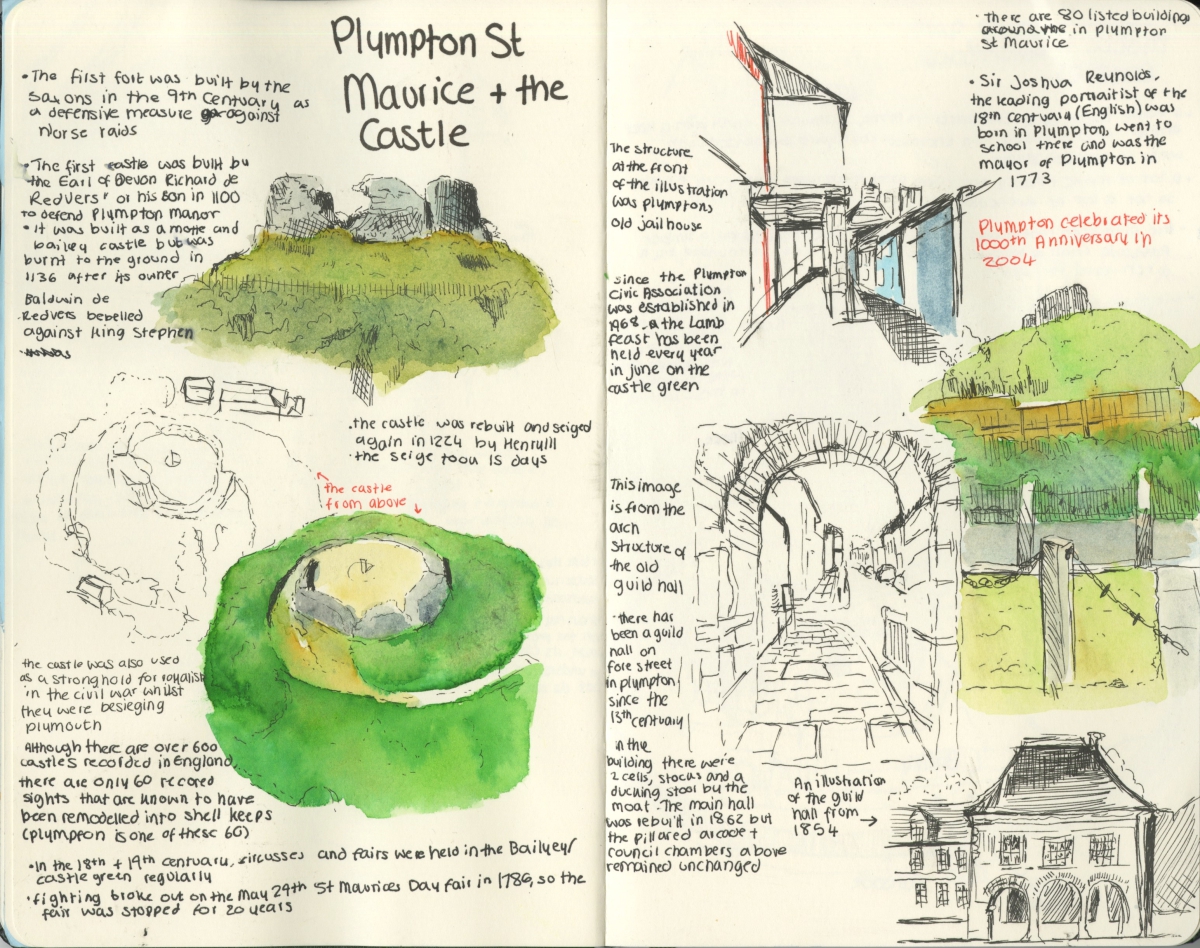 Plympton St
Maurice + the
Castle
• The first fort was built by the
Saxons in the 9th Centuary as
a defensive measure against
Norse raids
• The first castle was built by
the Earl of Devon Richard de
Redvers" or his son in 1100
to defend Plympton Manor
• It was built as a motte and
bailey castle but was
burnt to the ground in
1136 after its owner
Baldwin de
Redvers bebelled
against King Stephen
• the castle was rebuilt and seiged
again in 1224 by Henry III
• the seige took 15 days
the castle
from above
the castle was also used
as a stronghold for royalist
in the civil war whilst
they were besieging
plymouth
Although there are over 600
castles recorded in England
there are only 60 recored
sights that are known to have
been remodelled into shell keeps
(plympton is one of these 60)
• In the 18th + 19th centuary, circusses and fairs were held in the Bailyey/
castle green regularly
• fighting broke out on the May 24th St Maurices Day fair in 1786, so the
fair was stopped for 20 years
• there are 80 listed buildings
in plympton
St Maurice
• Sir Joshua Reynolds,
the leading portraitist of the
18th centuary (English) was
born in Plympton, went to
school there and was the
mayor of Plympton in
1773
Plympton celebrated its
1000th Anniversary in
2004
The structure
at the front
of the illustration
was plymptons
old jail house
since the Plympton
Civic Association
was established in
1968, the Lamb
feast has been
held every year
in june on the
castle green
This image
is from the
arch
structure of
the old
guild hall
• there has
been a guild
hall on
fore street
in plympton
since the
13th centuary
in the
building there were
2 cells, stocks and a
ducking stool by the
moat. The main hall
was rebuilt in 1862 but
the pillared arcade +
council chambers above
remained unchanged
An illustration
of the guild
hall from
1854 →